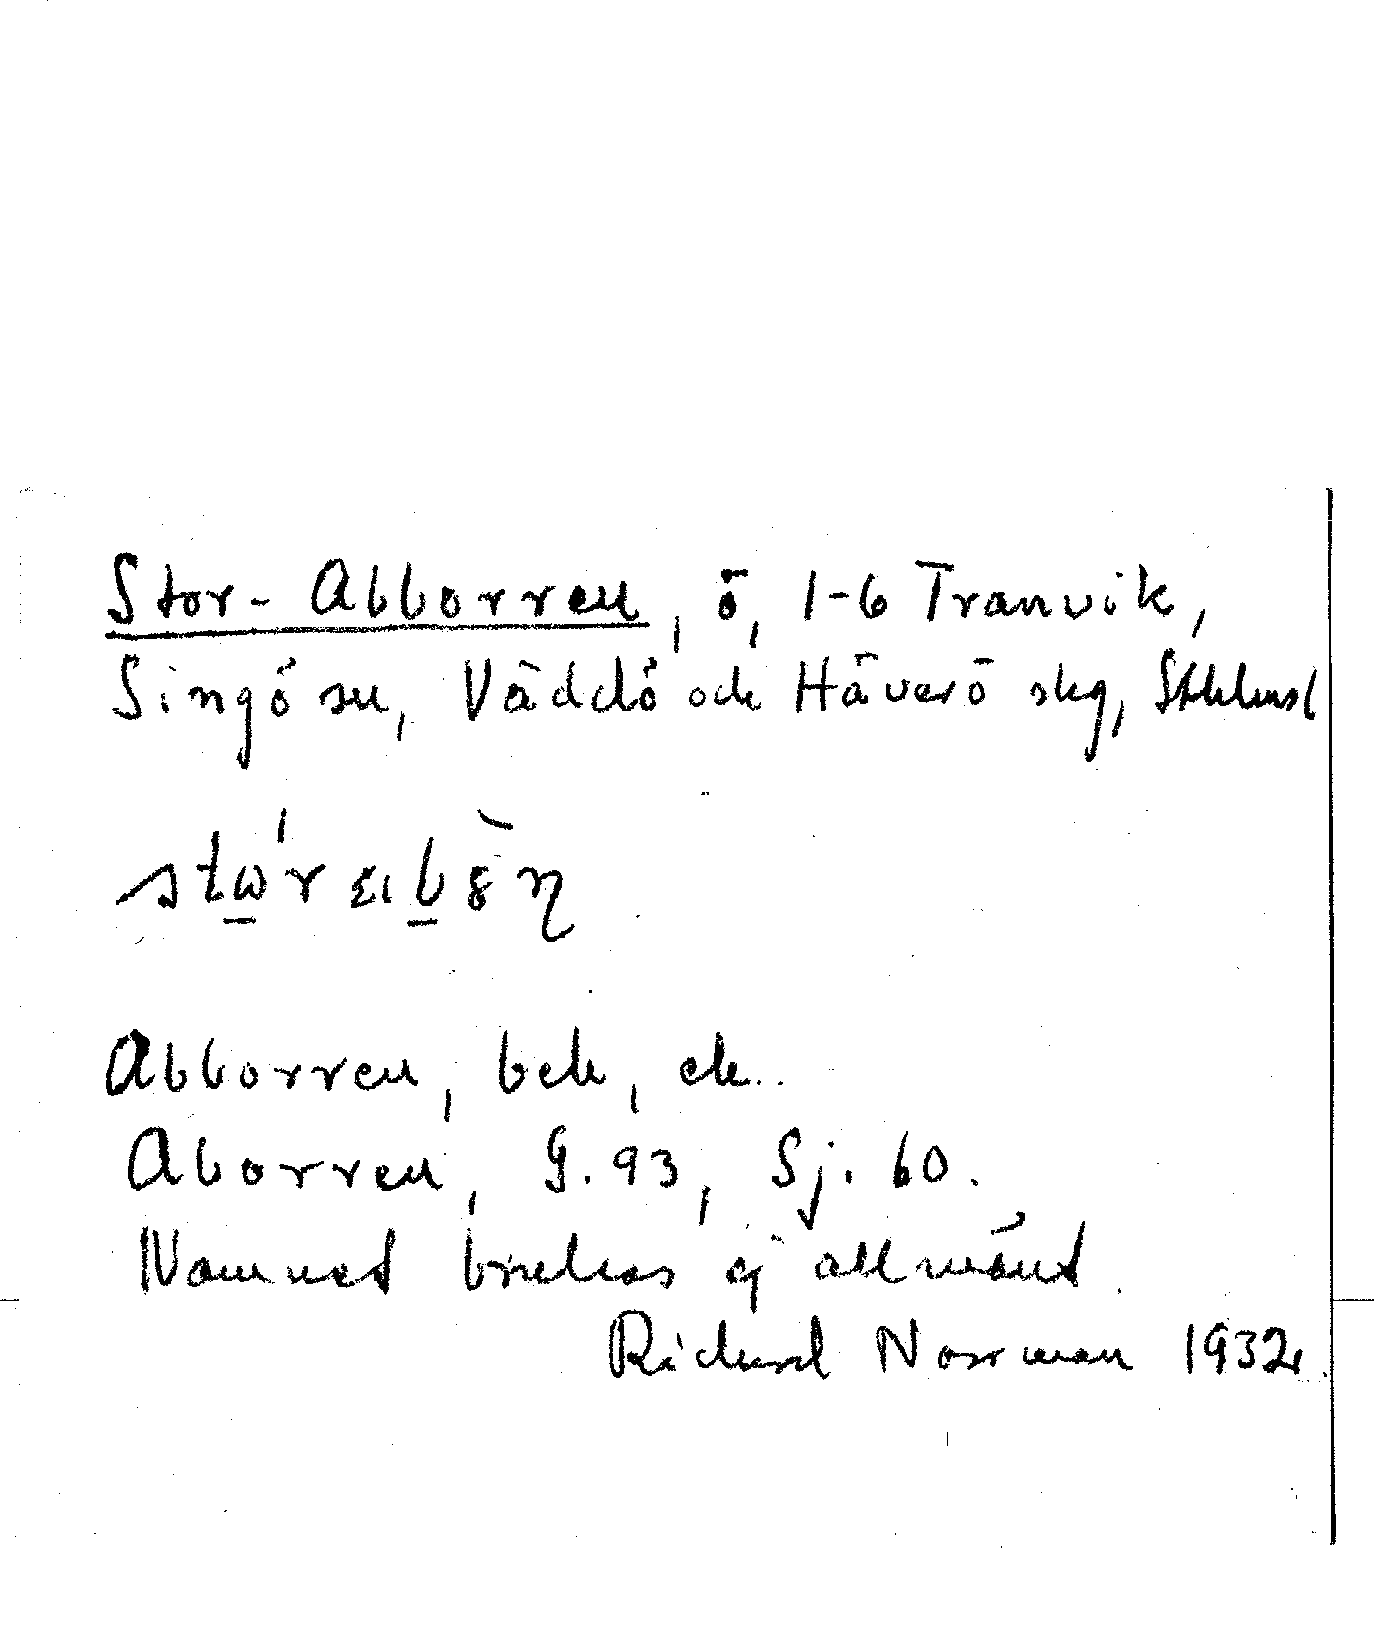 Stor-Abborren, ö, 1-6 Tranvik,
Singö sn, Väddö och Häverö skg, Sthlms l
Abborren, bek, ek.
Aborren, G. 93, Sj. 60.
Namnet brukas ej allmänt.
Richard Norrman 1932.